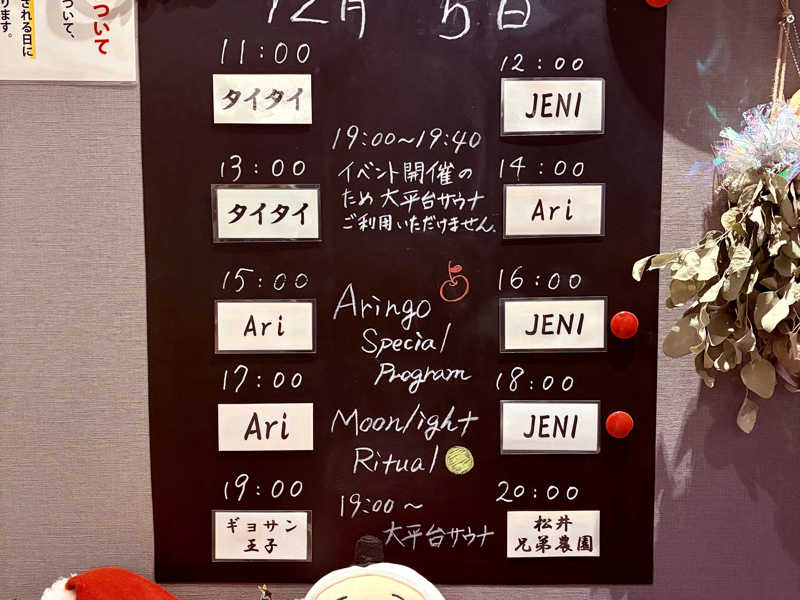 ついて
ついて、
される日に
ります。
12月 5日
11:00
タイタイ
12:00
JENI
19:00〜19:40
イベント開催の
ため 大平台サウナ
ご利用いただけません。
13:00
タイタイ
14:00
Ari
15:00
Ari
16:00
JENI
Aringo
Special
Program
17:00
Ari
18:00
JENI
Moonlight
Ritual
19:00〜
大平台サウナ
19:00
ギョサン
王子
20:00
松井
兄弟農園